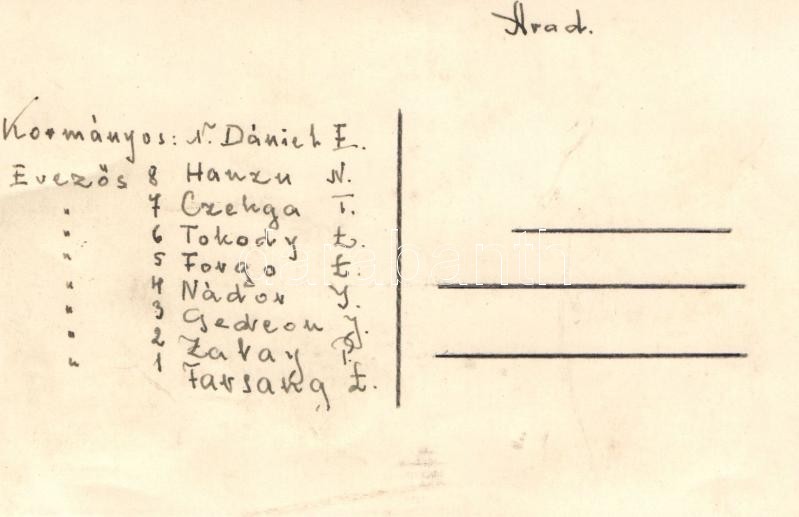 Arad.
Kormányos: N. Dániel E.
Evezős 8 Hanzu N.
" 7 Czekga T.
" 6 Tokody L.
" 5 Forgo L.
" 4 Nádor J.
" 3 Gedeon J.
" 2 Zaray P.
" 1 Farsang L.
darabanth